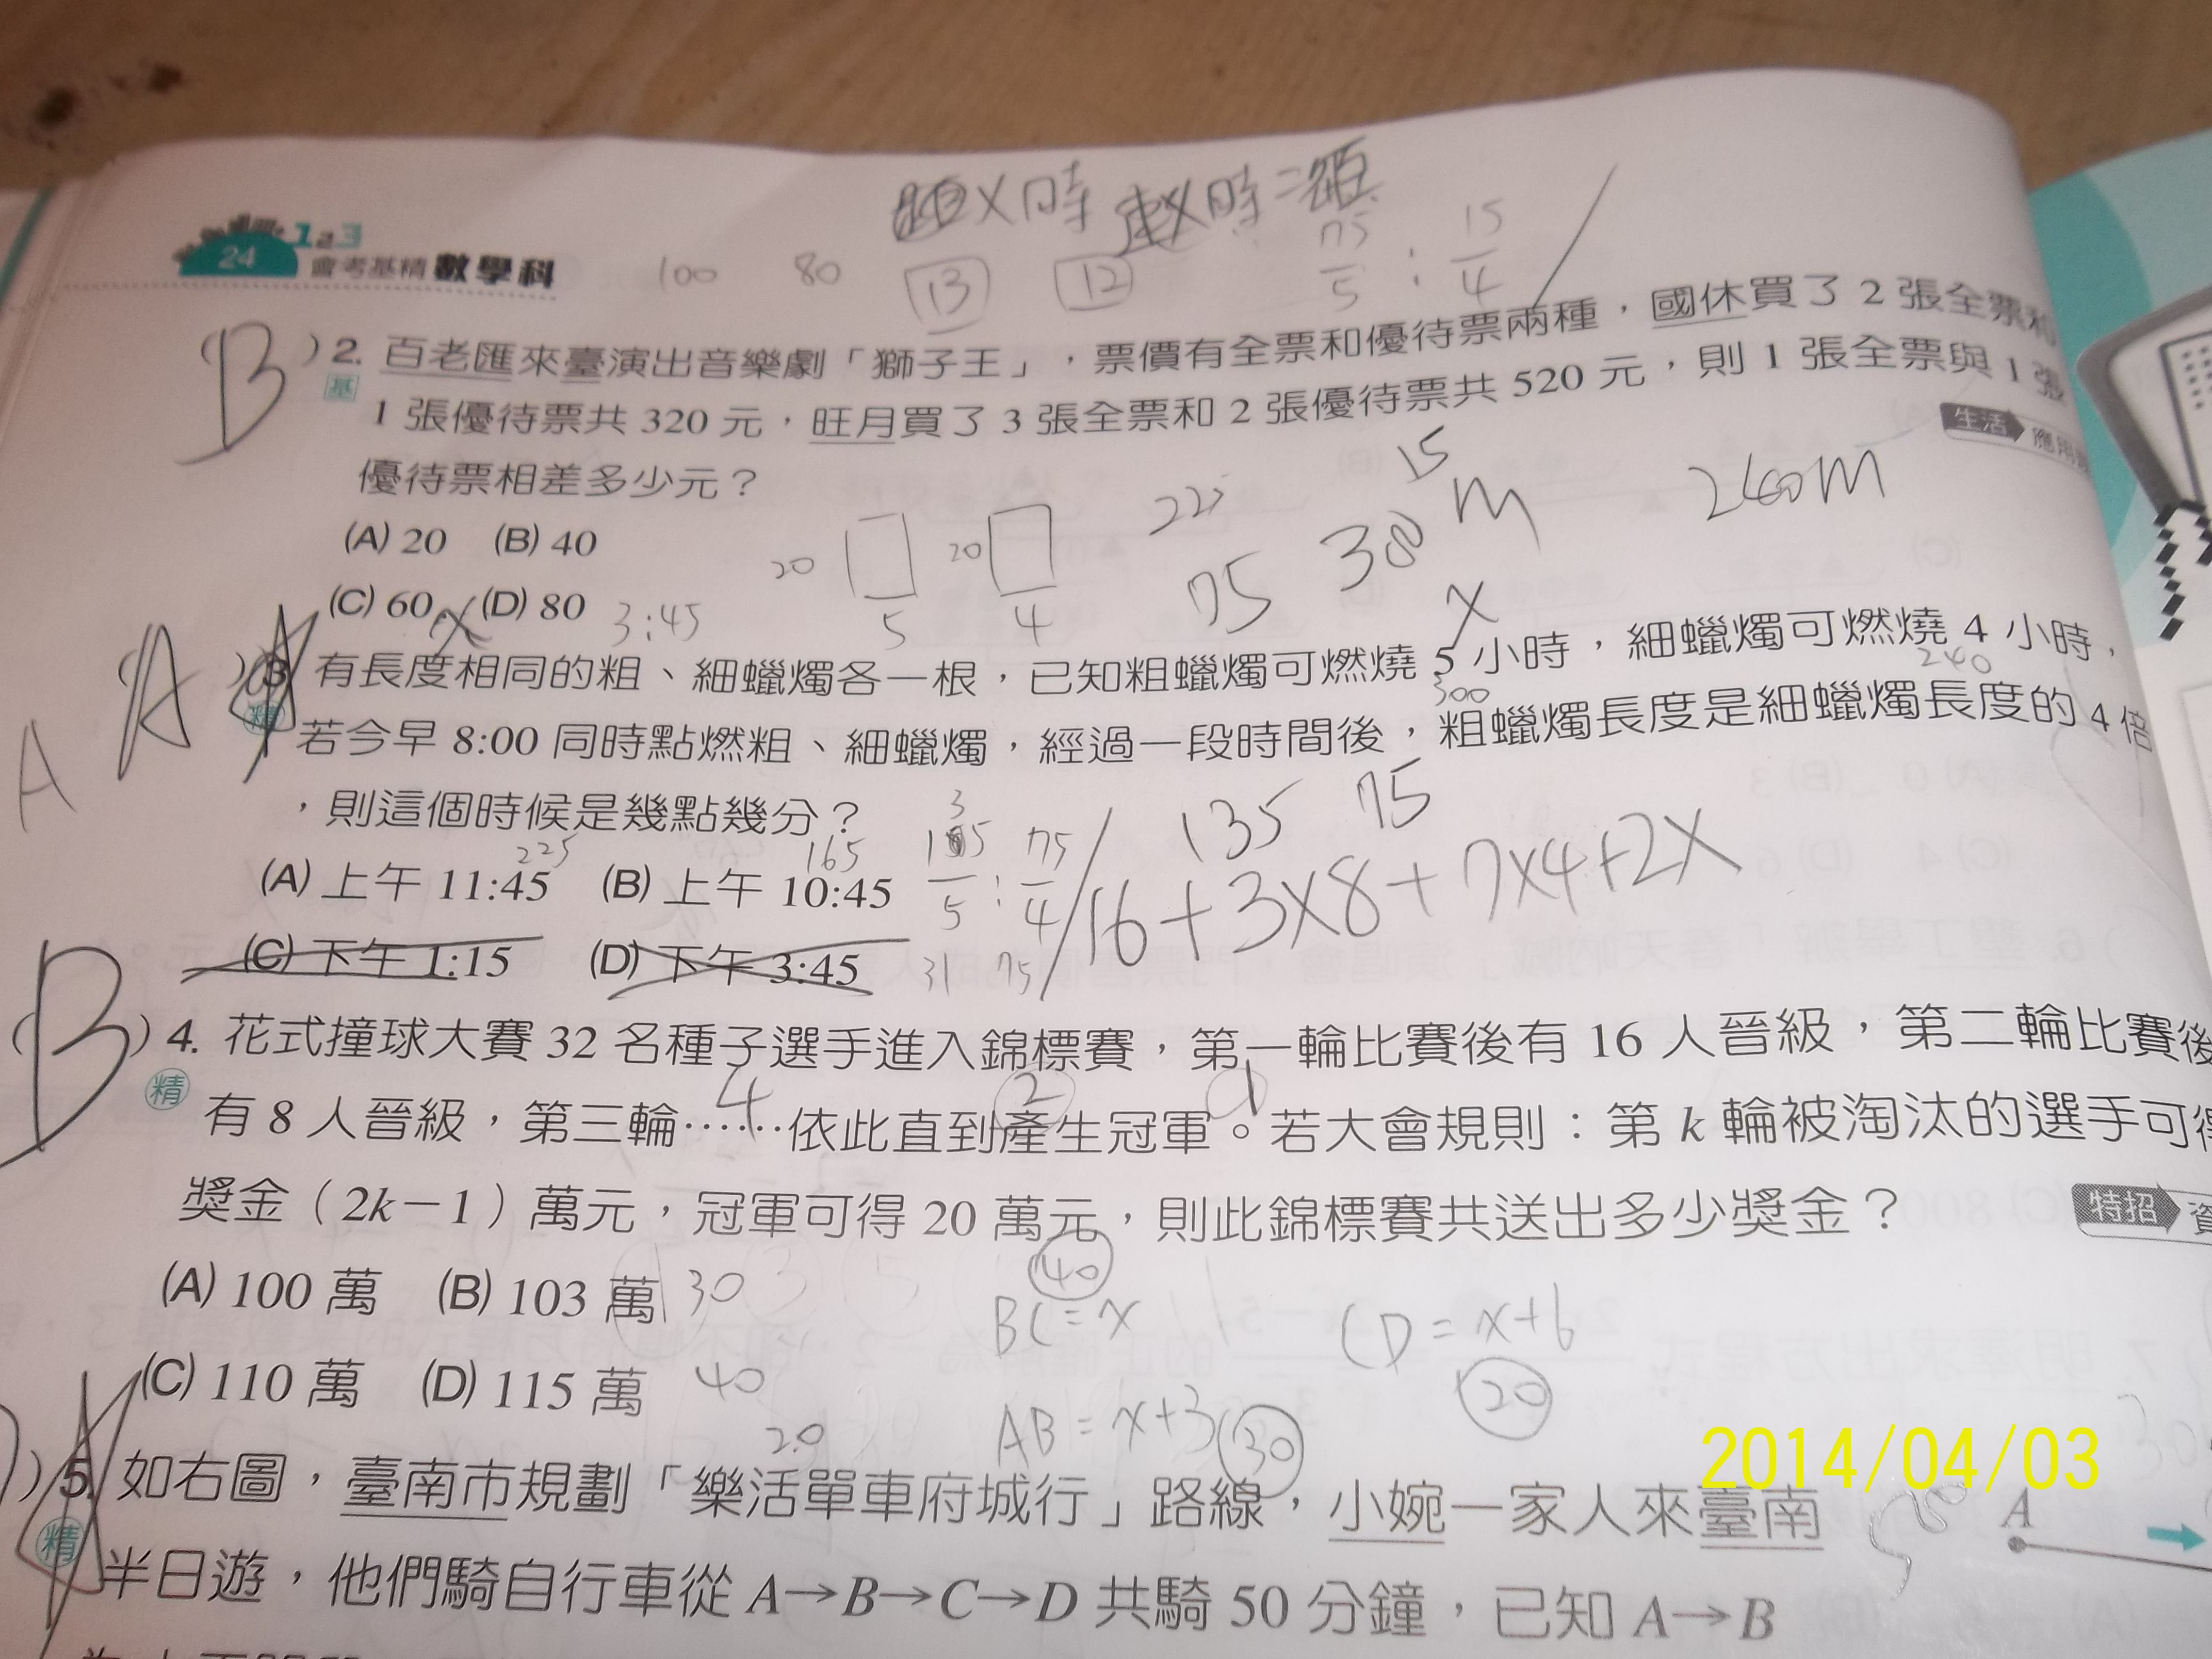 24 123 會考基精 數學科
100 80 13 12 75/5 : 15/4
(B) 2. 百老匯來臺演出音樂劇「獅子王」，票價有全票和優待票兩種，國休買了 2 張全票和
基
1 張優待票共 320 元，旺月買了 3 張全票和 2 張優待票共 520 元，則 1 張全票與 1 張
生活 應用
優待票相差多少元？
15
240m
(A) 20 (B) 40
20 5 20 4 75 m
(C) 60 (D) 80 3:45
x
A A )3. 有長度相同的粗、細蠟燭各一根，已知粗蠟燭可燃燒 5 小時，細蠟燭可燃燒 4 小時，
精
300 240
若今早 8:00 同時點燃粗、細蠟燭，經過一段時間後，粗蠟燭長度是細蠟燭長度的 4 倍
，則這個時候是幾點幾分？
225 165 135 75
(A) 上午 11:45 (B) 上午 10:45
16+3x8+7x4+2x
(C) 下午 1:15 (D) 下午 3:45
31 75
(B) 4. 花式撞球大賽 32 名種子選手進入錦標賽，第一輪比賽後有 16 人晉級，第二輪比賽後
精
4 2 1
有 8 人晉級，第三輪……依此直到產生冠軍。若大會規則：第 k 輪被淘汰的選手可得
獎金（2k－1）萬元，冠軍可得 20 萬元，則此錦標賽共送出多少獎金？
特招
(A) 100 萬 (B) 103 萬 30
40
BC=x CD=x+6
(C) 110 萬 (D) 115 萬 40
20
AB=x+3 30
20
2014/04/03
)5. 如右圖，臺南市規劃「樂活單車府城行」路線，小婉一家人來臺南
精
A
半日遊，他們騎自行車從 A→B→C→D 共騎 50 分鐘，已知 A→B